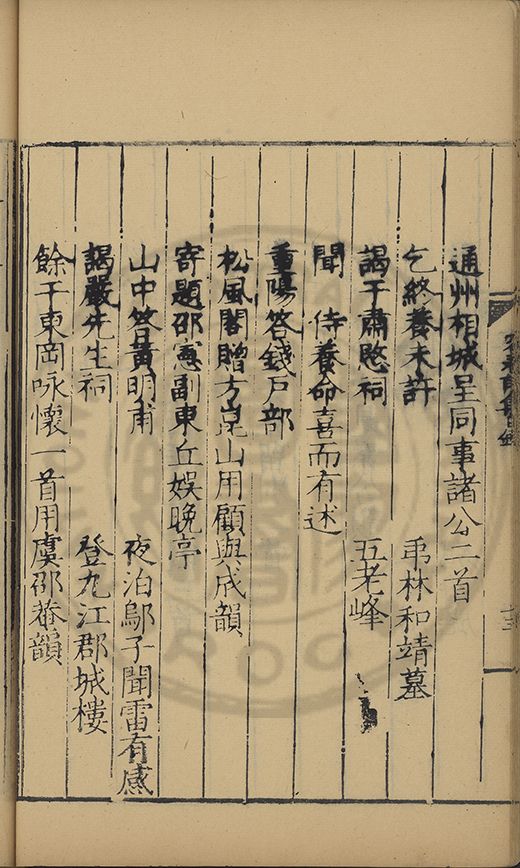 通州相城呈同事諸公二首
乞終養未許 弔林和靖墓
謁于肅愍祠 五老峰
聞 侍養命喜而有述
重陽答錢戶部
松風閣贈方崑山用顧與成韻
寄題邵憲副東丘娛晚亭
山中答黃明甫 夜泊鄔子聞雷有感
謁嚴先生祠 登九江郡城樓
餘干東岡咏懷一首用虞邵菴韻